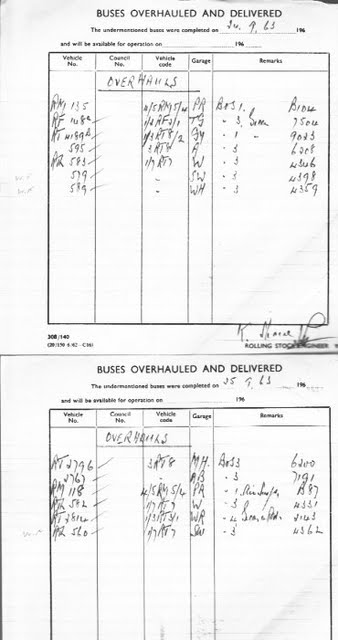 BUSES OVERHAULED AND DELIVERED
The undermentioned buses were completed on 24.9.63 196
and will be available for operation on 196
Vehicle No. Council No. Vehicle code Garage Remarks
OVERHAULS
RM 135 4/5RM5/4 PR BoS1. B104
TG - 3, 7504
1/3RT8/2 GY - 1 " 9023
595 3RT8 A - 3 6208
583 1/7RT7 W - 3 4346
579 " SW - 3 4398
589 " WH - 3 4359
308/140
ROLLING STOCK ENGINEER
BUSES OVERHAULED AND DELIVERED
The undermentioned buses were completed on 25.9.63 196
and will be available for operation on 196
Vehicle No. Council No. Vehicle code Garage Remarks
OVERHAULS
RT 2796 3RT8 MH. BoS3 6200
2767 " AB - 3 7191
RM 118 4/5RM5/4 PR - 1 B87
1/7RT7 W - 3 4331
WR - 4 2143
560 1/7RT7 SW - 3 4362